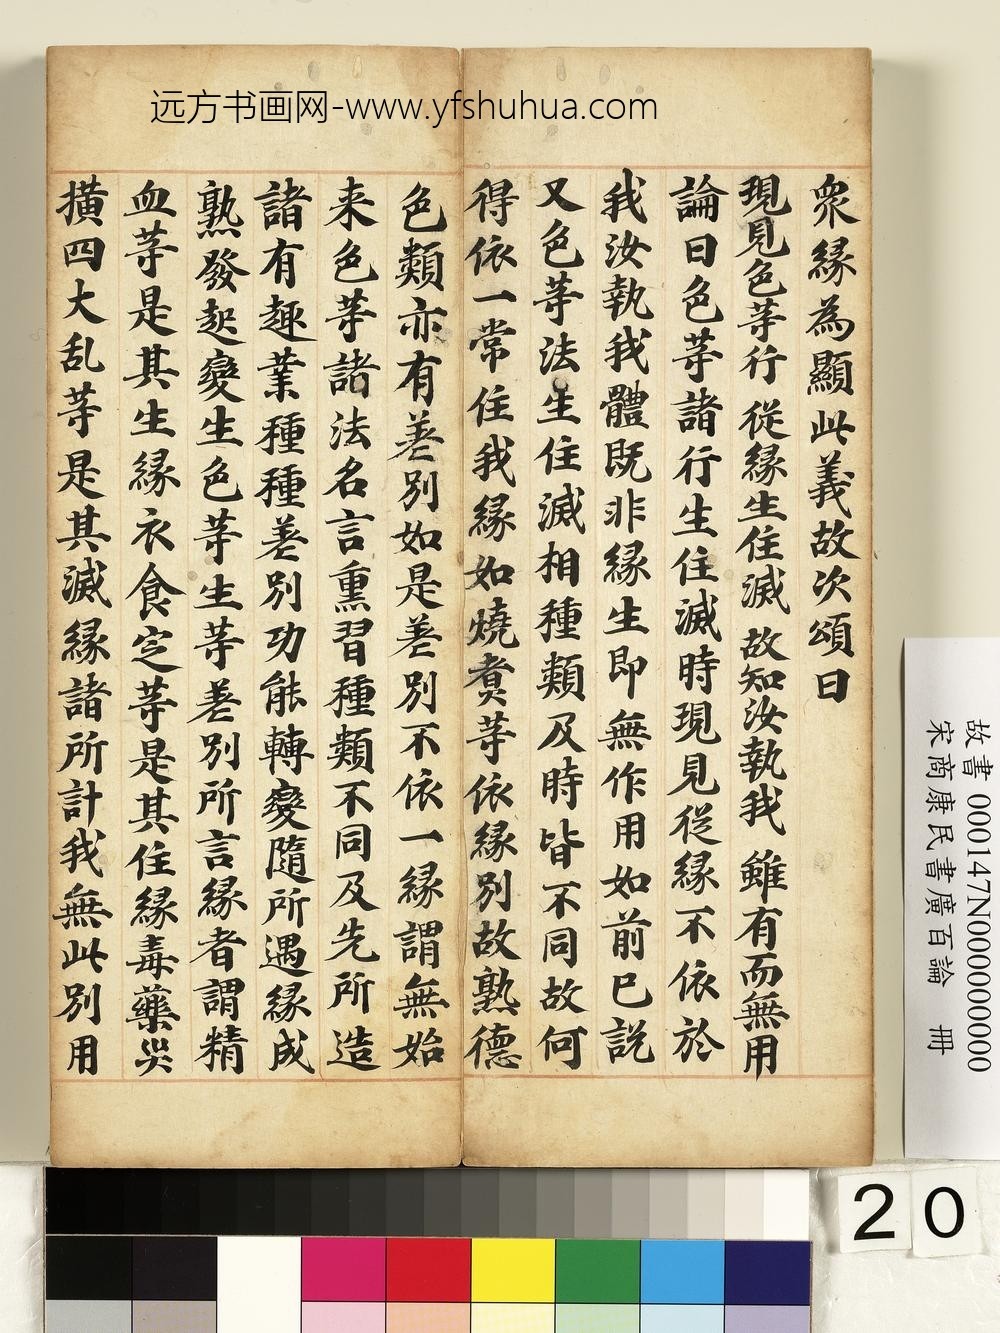 远方书画网-www.yfshuhua.com
衆縁為顯此義故次頌曰
現見色等行 從縁生住滅 故知汝執我 雖有而無用
論曰色等諸行生住滅時現見從縁不依於
我汝執我體既非縁生即無作用如前已説
又色等法生住滅相種類及時皆不同故何
得依一常住我縁如燒煮等依縁別故熟德
色類亦有差別如是差別不依一縁謂無始
来色等諸法名言熏習種類不同及先所造
諸有趣業種種差別功能轉變隨所遇縁成
熟發起變生色等生等差別所言縁者謂精
血等是其生縁衣食定等是其住縁毒藥災
擴四大乱等是其滅縁諸所計我無此別用
故書 000147N000000000
宋商康民書廣百論 冊
20